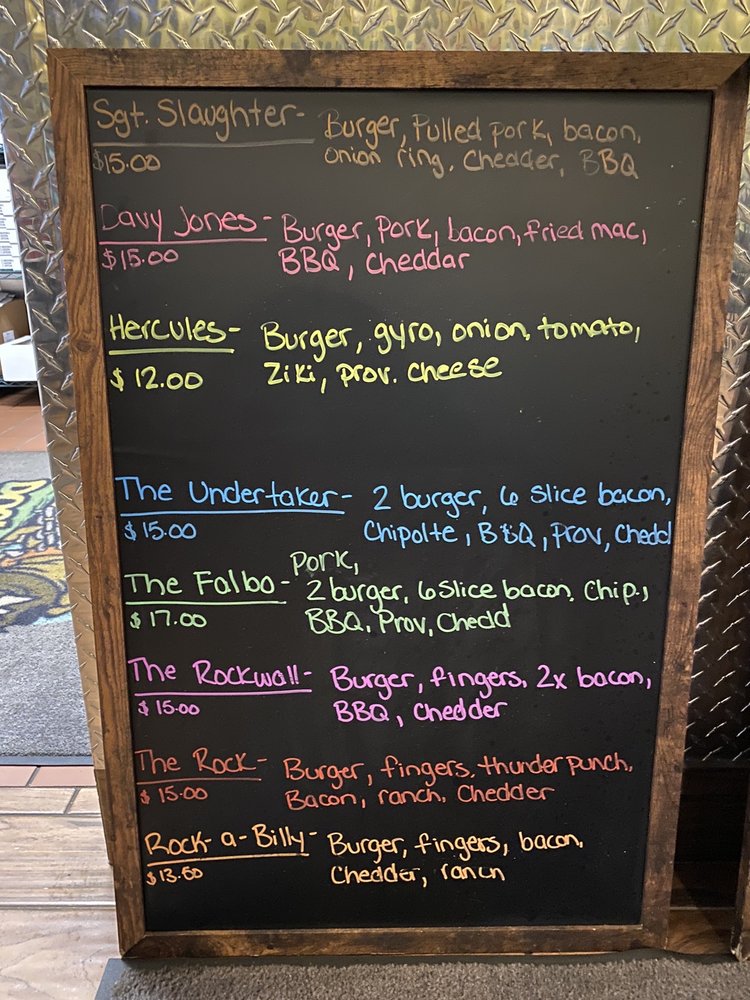 Sgt. Slaughter- Burger, Pulled pork, bacon,
$15.00 onion ring, Chedder, BBQ
Davy Jones- Burger, Pork, bacon, fried mac,
$15.00 BBQ, cheddar
Hercules- Burger, gyro, onion, tomato,
$12.00 Ziki, prov. cheese
The Undertaker- 2 burger, 6 slice bacon,
$15.00 Chipolte, BBQ, Prov, Chedd
Pork,
The Falbo- 2 burger, 6 slice bacon, Chip.,
$17.00 BBQ, Prov, Chedd
The Rockwall- Burger, fingers, 2x bacon,
$15.00 BBQ, Chedder
The Rock- Burger, fingers, thunder punch,
$15.00 Bacon, ranch, Chedder
Rock-a-Billy- Burger, fingers, bacon,
$13.50 Chedder, ranch